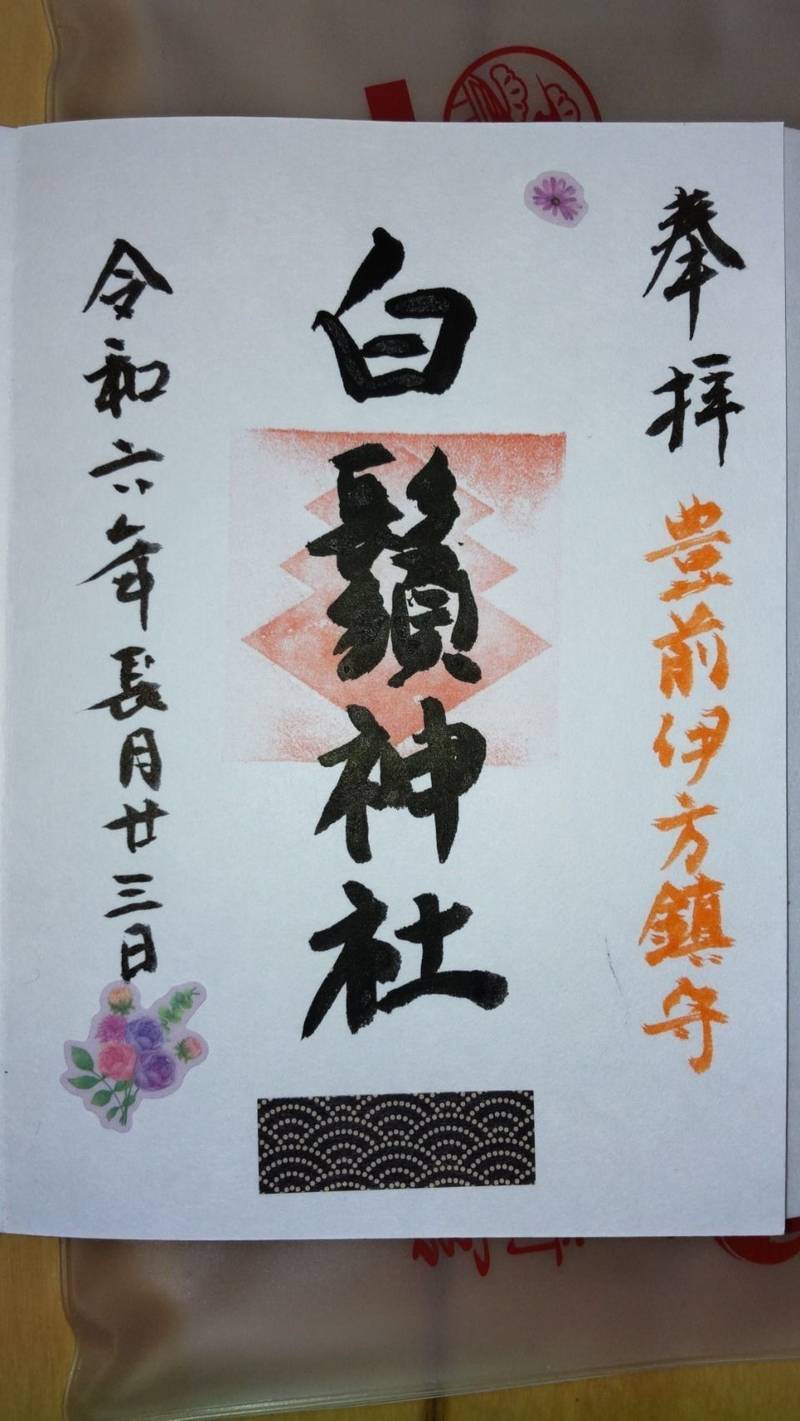 奉拝 豊前伊方鎮守
白鬚神社
令和六年長月廿三日